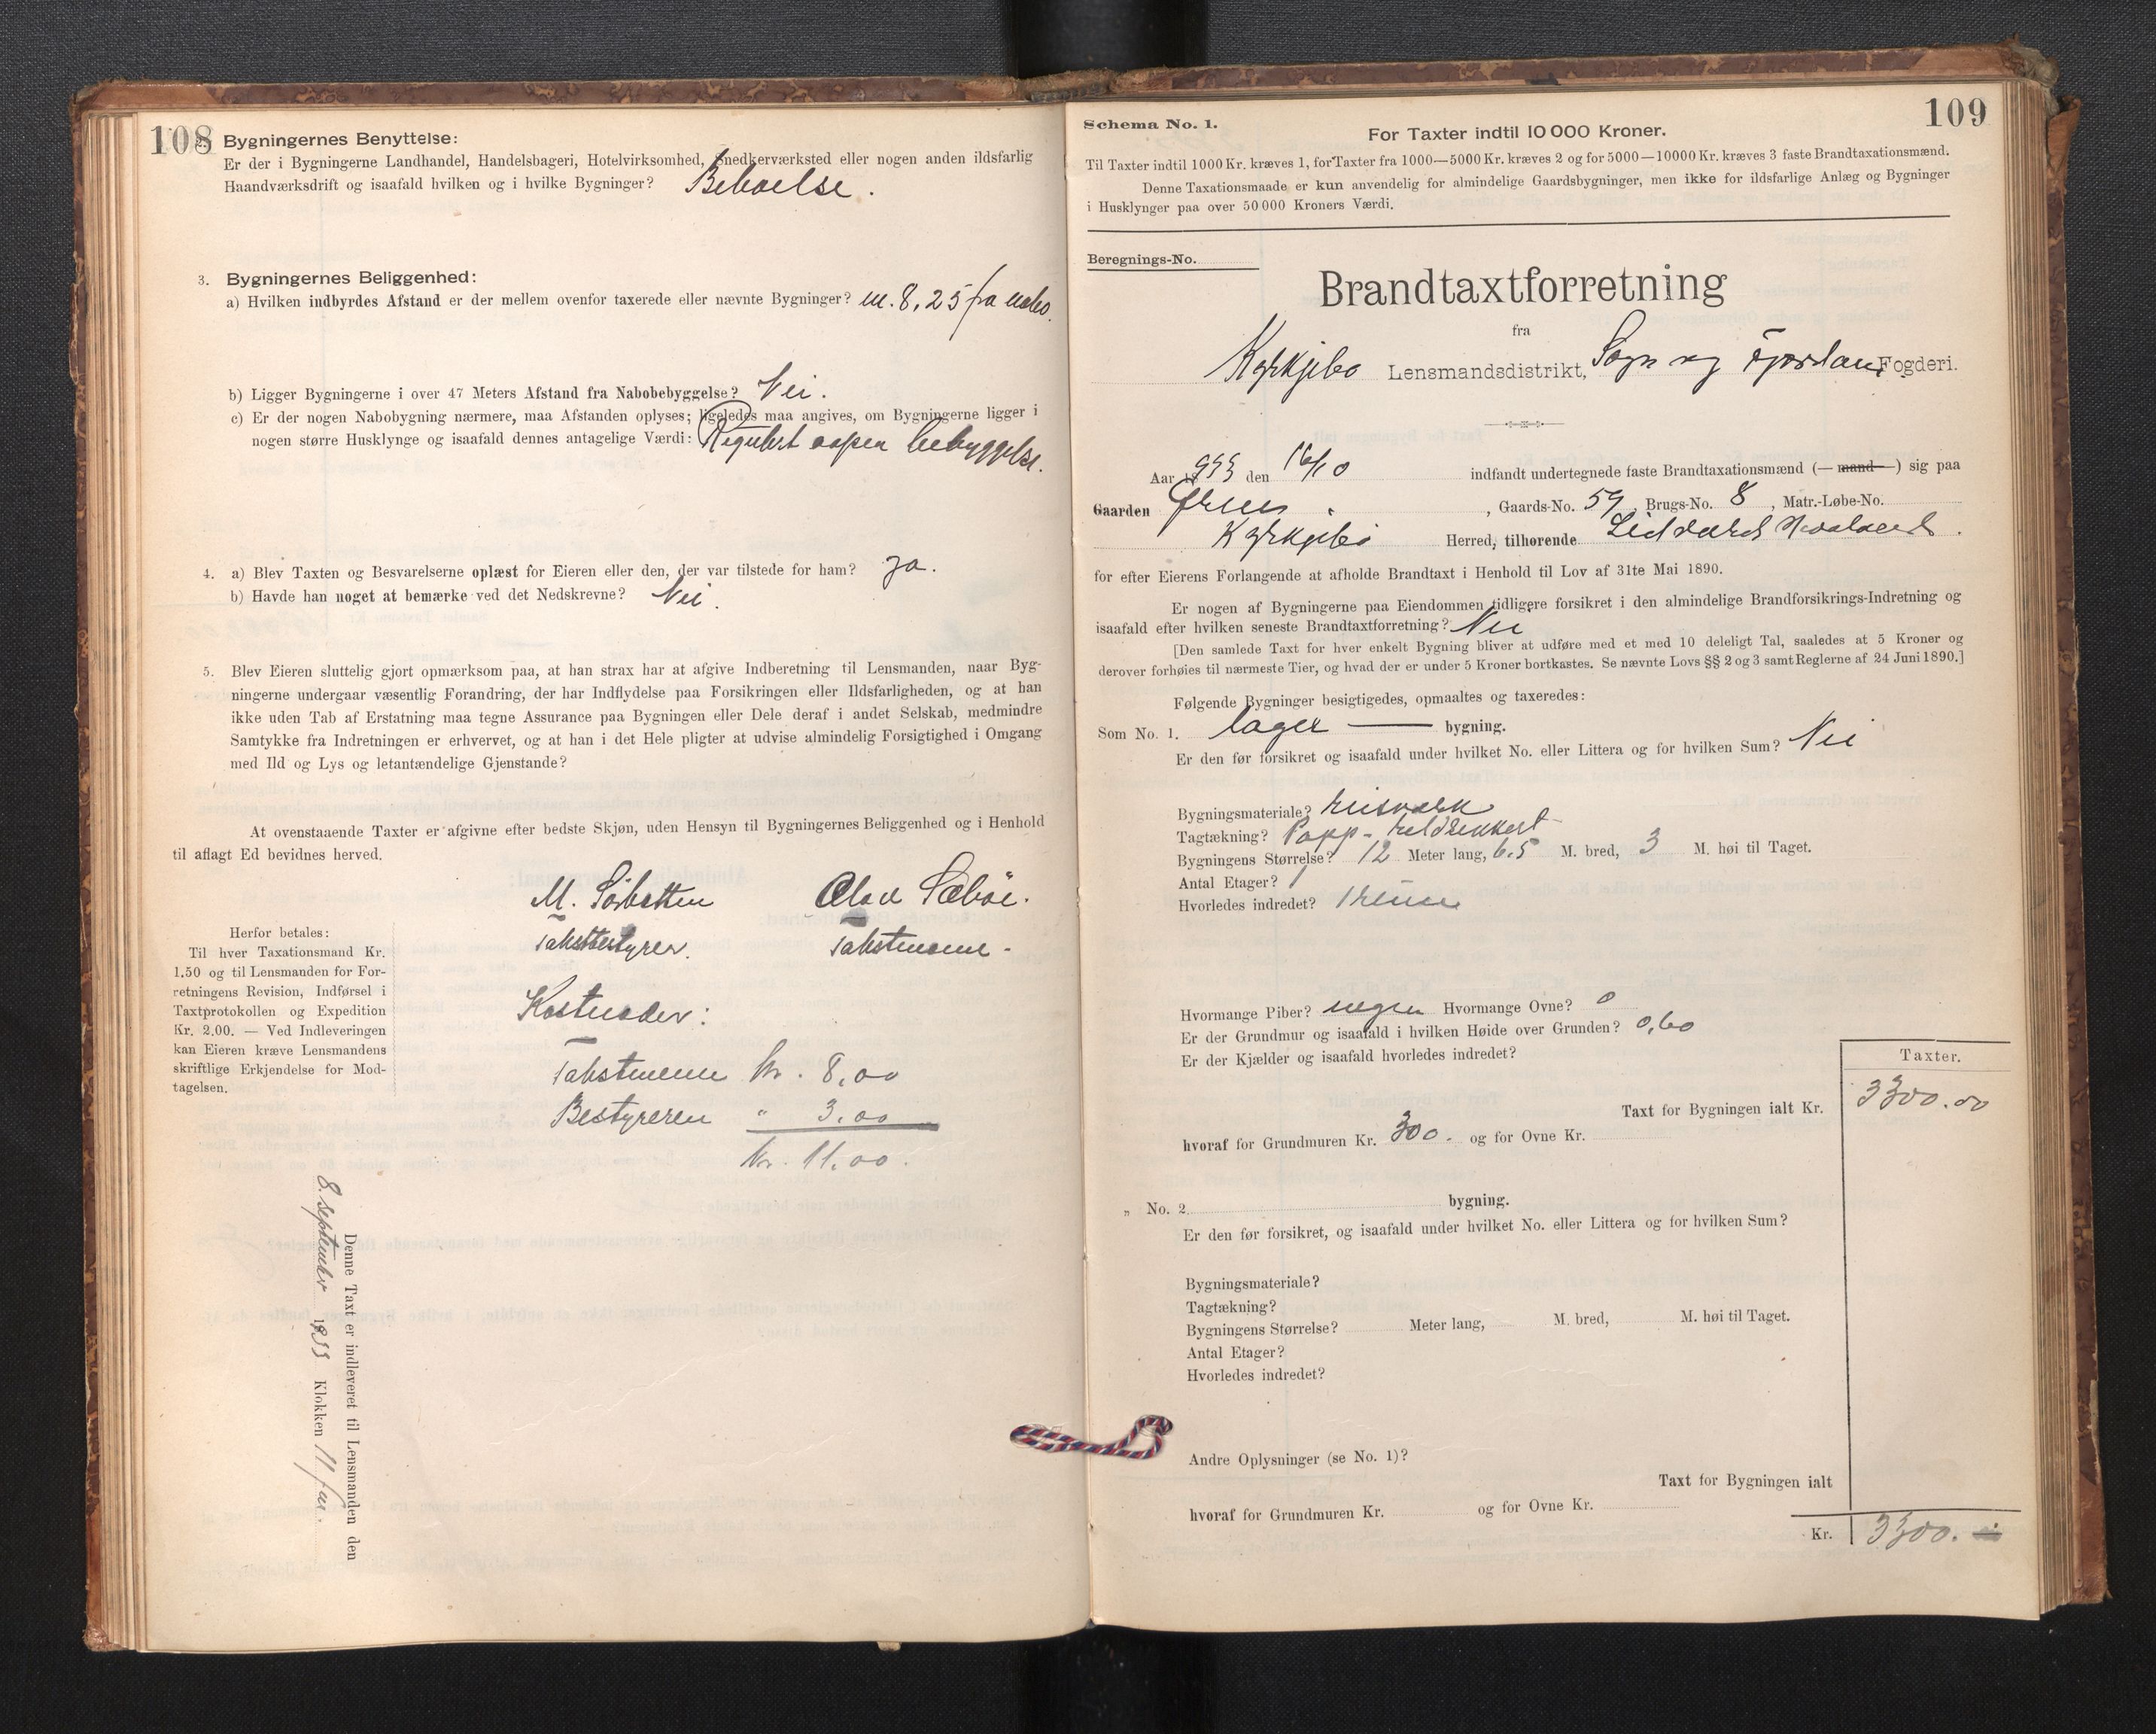 108
2. Bygningernes Benyttelse:
Er der i Bygningerne Landhandel, Handelsbageri, Hotelvirksomhed, Snedkerværksted eller nogen anden ildsfarlig
Haandværksdrift og isaafald hvilken og i hvilke Bygninger? Beboelse.
3. Bygningernes Beliggenhed:
a) Hvilken indbyrdes Afstand er der mellem ovenfor taxerede eller nævnte Bygninger? m. 8,25 fra nabo.
b) Ligger Bygningerne i over 47 Meters Afstand fra Nabobebyggelse? Nei.
c) Er der nogen Nabobygning nærmere, maa Afstanden oplyses; ligeledes maa angives, om Bygningerne ligger i
nogen større Husklynge og isaafald dennes antagelige Værdi: Regulert aapen bebyggelse.
4. a) Blev Taxten og Besvarelserne oplæst for Eieren eller den, der var tilstede for ham? Ja.
b) Havde han noget at bemærke ved det Nedskrevne? Nei.
5. Blev Eieren sluttelig gjort opmærksom paa, at han strax har at afgive Indberetning til Lensmanden, naar Byg-
ningerne undergaar væsentlig Forandring, der har Indflydelse paa Forsikringen eller Ildsfarligheden, og at han
ikke uden Tab af Erstatning maa tegne Assurance paa Bygningen eller Dele deraf i andet Selskab, medmindre
Samtykke fra Indretningen er erhvervet, og at han i det Hele pligter at udvise almindelig Forsigtighed i Omgang
med Ild og Lys og letantændelige Gjenstande?
At ovenstaaende Taxter er afgivne efter bedste Skjøn, uden Hensyn til Bygningernes Beliggenhed og i Henhold
til aflagt Ed bevidnes herved.
M. Sørbotten Olav Sæbøe.
Takstbestyrer. Takstmenn.
Herfor betales:
Til hver Taxationsmand Kr.
1,50 og til Lensmanden for For-
retningens Revision, Indførsel i
Taxtprotokollen og Expedition
Kr. 2,00. — Ved Indleveringen
kan Eieren kræve Lensmandens
skriftlige Erkjendelse for Mod-
tagelsen.
Kostnader:
Takstmenn kr. 8,00
Bestyreren " 3,00
kr. 11,00.
Denne Taxt er indleveret til Lensmanden den
8. september 1933 Klokken 11 fm.
109
Schema No. 1.
For Taxter indtil 10 000 Kroner.
Til Taxter indtil 1000 Kr. kræves 1, for Taxter fra 1000—5000 Kr. kræves 2 og for 5000—10000 Kr. kræves 3 faste Brandtaxationsmænd.
Denne Taxationsmaade er kun anvendelig for almindelige Gaardsbygninger, men ikke for ildsfarlige Anlæg og Bygninger
i Husklynger paa over 50 000 Kroners Værdi.
Beregnings-No.
Brandtaxtforretning
fra
Kyrkjebø Lensmandsdistrikt, Sogn og Fjordane Fogderi.
Aar 1933 den 16/10 indfandt undertegnede faste Brandtaxationsmænd (— mand —) sig paa
Gaarden , Gaards-No. 59, Brugs-No. 8, Matr.-Løbe-No.
Kyrkjebø Herred, tilhørende
for efter Eierens Forlangende at afholde Brandtaxt i Henhold til Lov af 31te Mai 1890.
Er nogen af Bygningerne paa Eiendommen tidligere forsikret i den almindelige Brandforsikrings-Indretning og
isaafald efter hvilken seneste Brandtaxtforretning? Nei
[Den samlede Taxt for hver enkelt Bygning bliver at udføre med et med 10 deleligt Tal, saaledes at 5 Kroner og
derover forhøies til nærmeste Tier, og hvad der er under 5 Kroner bortkastes. Se nævnte Lovs §§ 2 og 3 samt Reglerne af 24 Juni 1890.]
Følgende Bygninger besigtigedes, opmaaltes og taxeredes:
Som No. 1. lager bygning.
Er den før forsikret og isaafald under hvilket No. eller Littera og for hvilken Sum? Nei
Bygningsmateriale? reisverk
Tagtækning? Papp-
Bygningens Størrelse? 12 Meter lang, 6.5 M. bred, 3 M. høi til Taget.
Antal Etager? 1
Hvorledes indredet? 1 rum
Hvormange Piber? ingen Hvormange Ovne? 0
Er der Grundmur og isaafald i hvilken Høide over Grunden? 0,60
Er der Kjælder og isaafald hvorledes indredet?
Taxter.
Taxt for Bygningen ialt Kr. 3300.00
hvoraf for Grundmuren Kr. 300. og for Ovne Kr.
„ No. 2 bygning.
Er den før forsikret, og isaafald under hvilket No. eller Littera og for hvilken Sum?
Bygningsmateriale?
Tagtækning?
Bygningens Størrelse? Meter lang, M. bred, M. høi til Taget.
Antal Etager?
Hvorledes indredet?
Andre Oplysninger (se No. 1)?
Taxt for Bygningen ialt
hvoraf for Grundmuren Kr. og for Ovne Kr.
Kr. 3300.